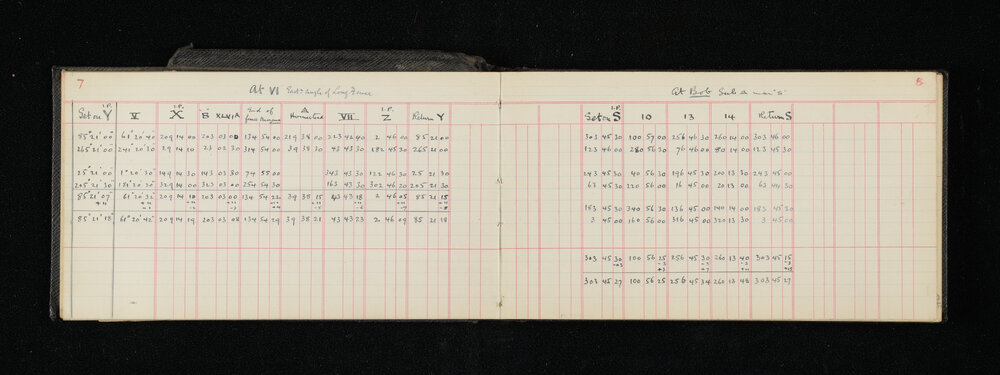 7
At VI East angle of Long House
I.P. I.P. I.P.
Set on Y V X B XLVIA End of A VII Z Return Y
85° 21' 00" 61° 20' 40" 209 14 00 203 03 00 134 54 00 219 38 00 223 43 40 2 46 00 85 21 00
265° 21' 00" 241° 20' 30" 29 14 10 23 02 30 314 54 00 39 38 30 43 43 30 182 45 30 265 21 00
25° 21' 00" 1° 20' 30" 149 14 30 143 03 30 74 55 00 343 43 30 122 46 30 25 21 30
205° 21' 30" 181° 20' 30" 329 14 00 323 03 00 254 54 30 163 43 30 302 46 20 205 21 30
85° 21' 07" 61° 20' 32" 209 14 10 203 03 00 134 54 22 39 38 15 43 43 18 2 46 05 85 21 15
85° 21' 18" 61° 20' 42" 209 14 19 203 03 08 134 54 29 39 38 21 43 43 23 2 46 09 85 21 18
8
At Bob
I.P.
Set on S 10 13 14 Return S
303 45 30 100 57 00 256 46 30 260 14 00 303 46 00
123 46 00 280 56 30 76 46 00 80 14 00 123 45 30
243 45 30 40 56 30 196 45 30 200 13 30 243 45 30
63 45 30 220 56 00 16 45 00 20 13 00 63 44 30
183 45 30 340 56 30 136 45 00 140 14 00 183 45 30
3 45 00 160 56 00 316 45 00 320 13 30 3 45 00
303 45 30 100 56 25 256 45 30 260 13 40 303 45 15
303 45 27 100 56 25 256 45 34 260 13 48 303 45 27